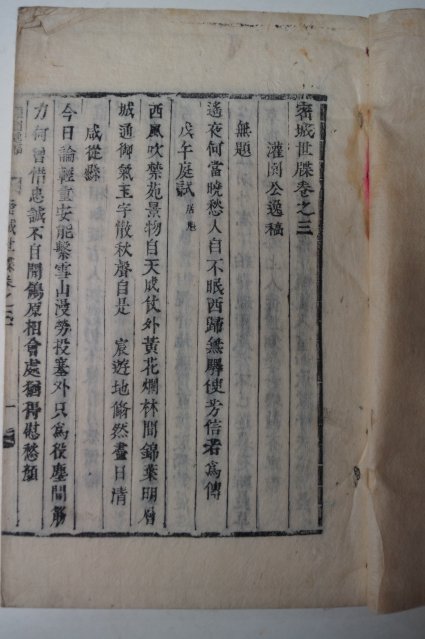 密城世牒卷之三
灌園公逸稿
無題
遙夜何當曉愁人自不眠西歸無驛使芳信若爲傳
戊午庭試居魁
西風吹禁苑景物自天成仗外黃花爛林間錦葉明層
城通御氣玉宇散秋聲自是 宸遊地翛然盡日淸
咸從
今日論輕重安能繫雪山漫勞投塞外只爲役塵間筋
力何曾惜忠誠不自閒鴒原相會處猶得慰愁顏
密城世牒卷之三
一